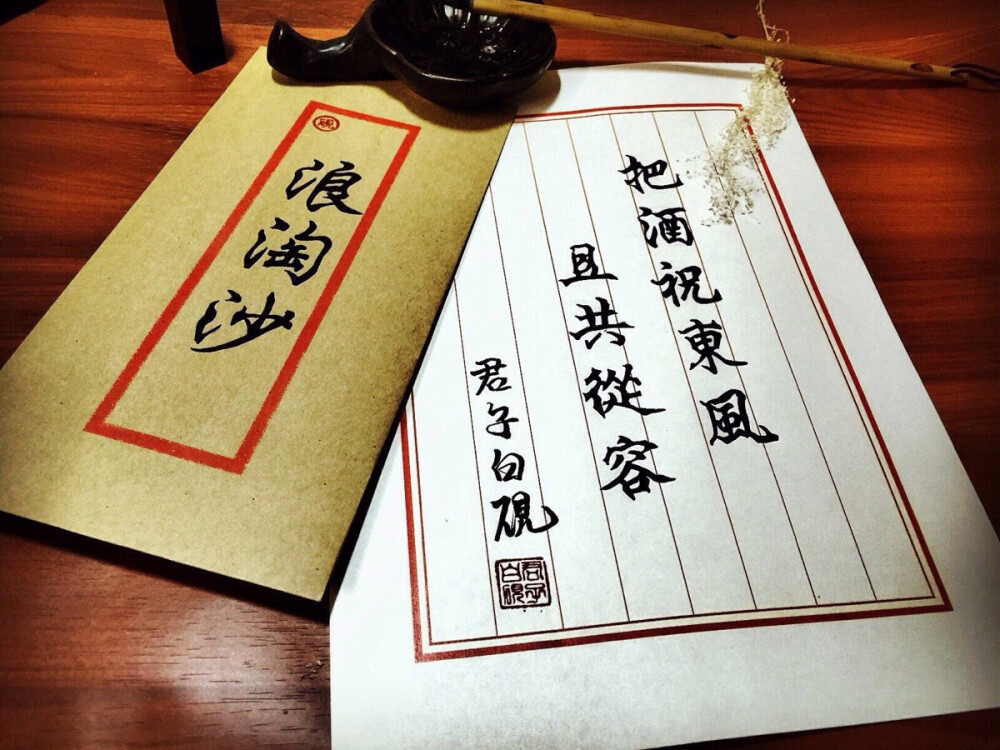 硯
浪淘沙
把酒祝東風
且共從容
君子白硯
君子
白硯